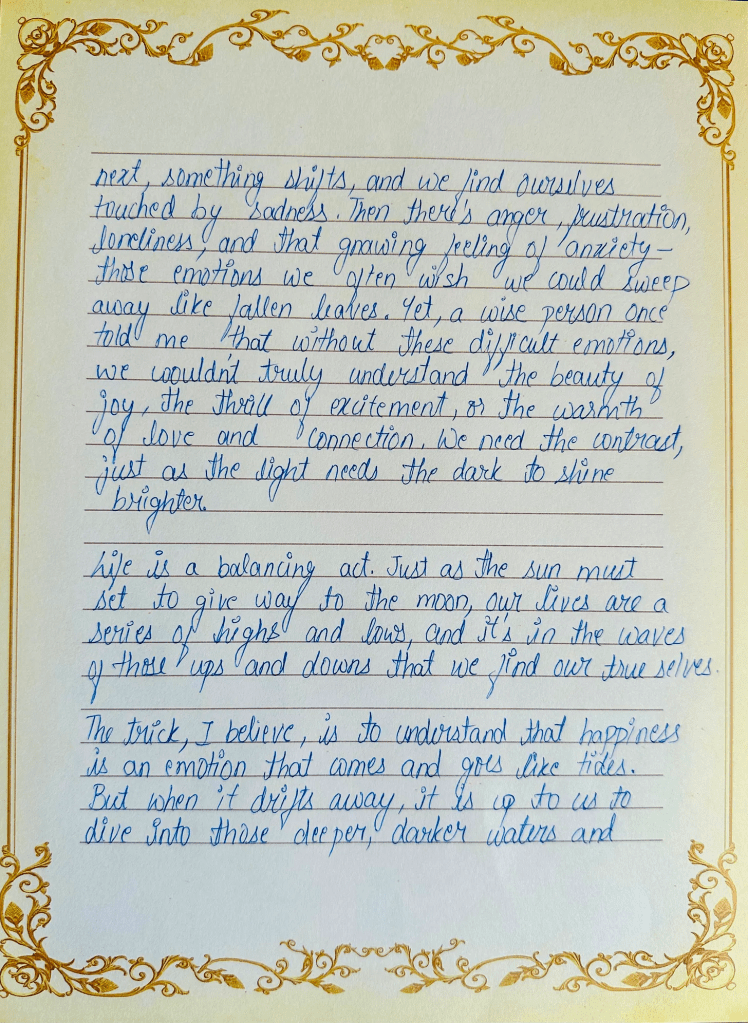 next, something shifts, and we find ourselves
touched by sadness. Then there's anger, frustration,
loneliness, and that gnawing feeling of anxiety—
those emotions we often wish we could sweep
away like fallen leaves. Yet, a wise person once
told me that without these difficult emotions,
we wouldn't truly understand the beauty of
joy, the thrill of excitement, or the warmth
of love and connection. We need the contrast,
just as the light needs the dark to shine
brighter.
Life is a balancing act. Just as the sun must
set to give way to the moon, our lives are a
series of highs and lows, and it's in the waves
of those ups and downs that we find our true selves.
The trick, I believe, is to understand that happiness
is an emotion that comes and goes like tides.
But when it drifts away, it is up to us to
dive into those deeper, darker waters and